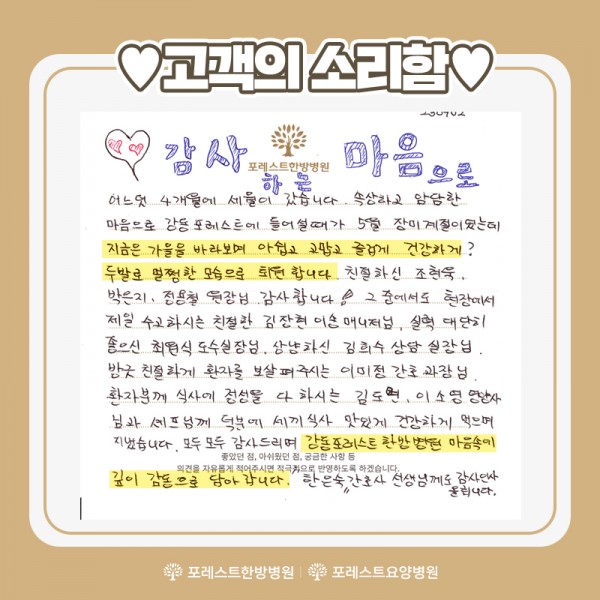 ♥고객의 소리함♥
감사 하는 마음으로
포레스트한방병원
어느덧 4개월에 세월이 갔습니다. 속상하고 답답한
마음으로 강동포레스트에 들어설때가 5월 장미계절이었는데
지금은 가을을 바라보며 아쉽고 고맙고 즐겁게 건강하게?
두발로 멀쩡한 모습으로 퇴원합니다. 친절하신 조현욱,
박은지, 전용철 원장님 감사합니다! 그 중에서도 현장에서
제일 수고하시는 친절한 김장현 이송매니저님, 실력 대단히
좋으신 최원식 도수실장님, 상냥하신 김희수 상담실장님.
방긋 친절하게 환자를 보살펴주시는 이미정 간호과장님.
환자분께 식사에 정성을 다 하시는 김도연, 이소영 영양사
님과 셰프님께 덕분에 세끼식사 맛있게 건강하게 먹으며
지냈습니다. 모두모두 감사드리며 강동포레스트한방병원 마음속에
좋았던 점, 아쉬웠던 점, 궁금한 사항 등
의견을 자유롭게 적어주시면 적극적으로 반영하도록 하겠습니다.
깊이 감동으로 담아갑니다. 한은숙"간호사 선생님께도 감사인사
올립니다.
포레스트한방병원 | 포레스트요양병원